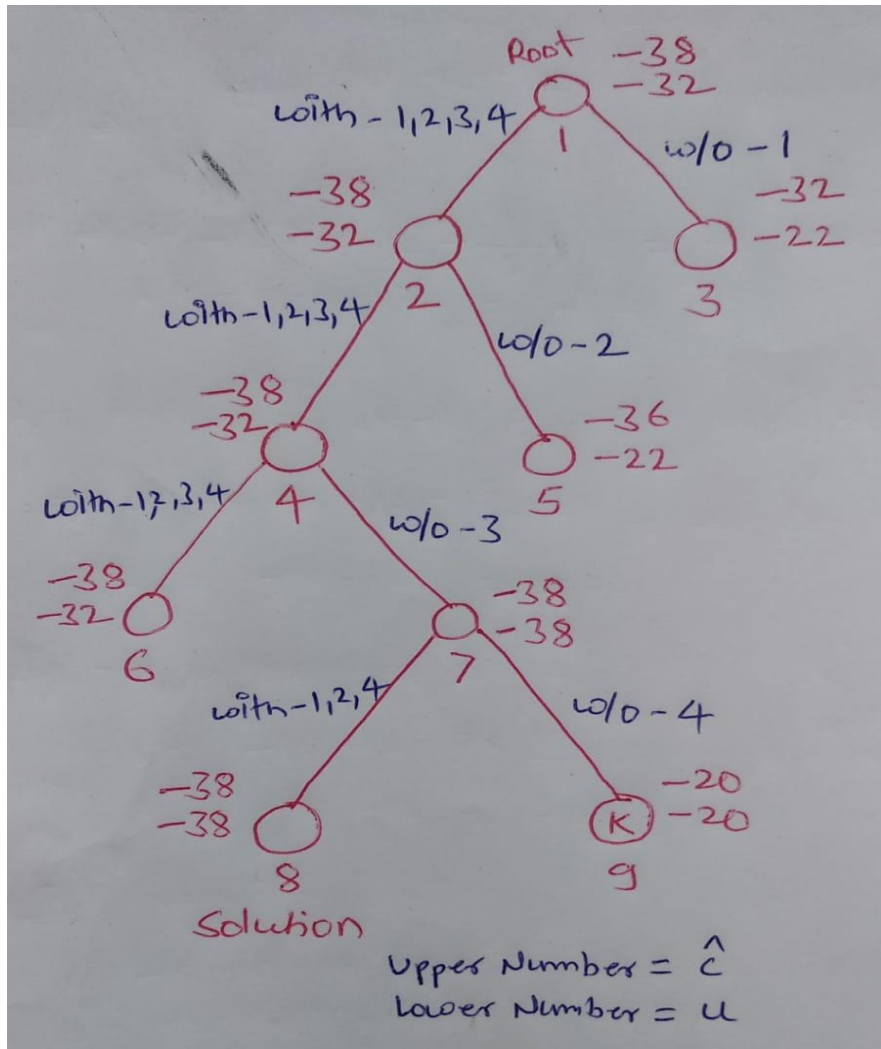 Root -38
-32
with-1,2,3,4
1
w/o-1
-38
-32
2
-32
-22
3
with-1,2,3,4
w/o-2
-38
-32
4
-36
-22
5
with-1,2,3,4
w/o-3
-38
-32
6
-38
-38
7
with-1,2,4
w/o-4
-38
-38
8
Solution
K
-20
-20
9
Upper Number = ĉ
Lower Number = u